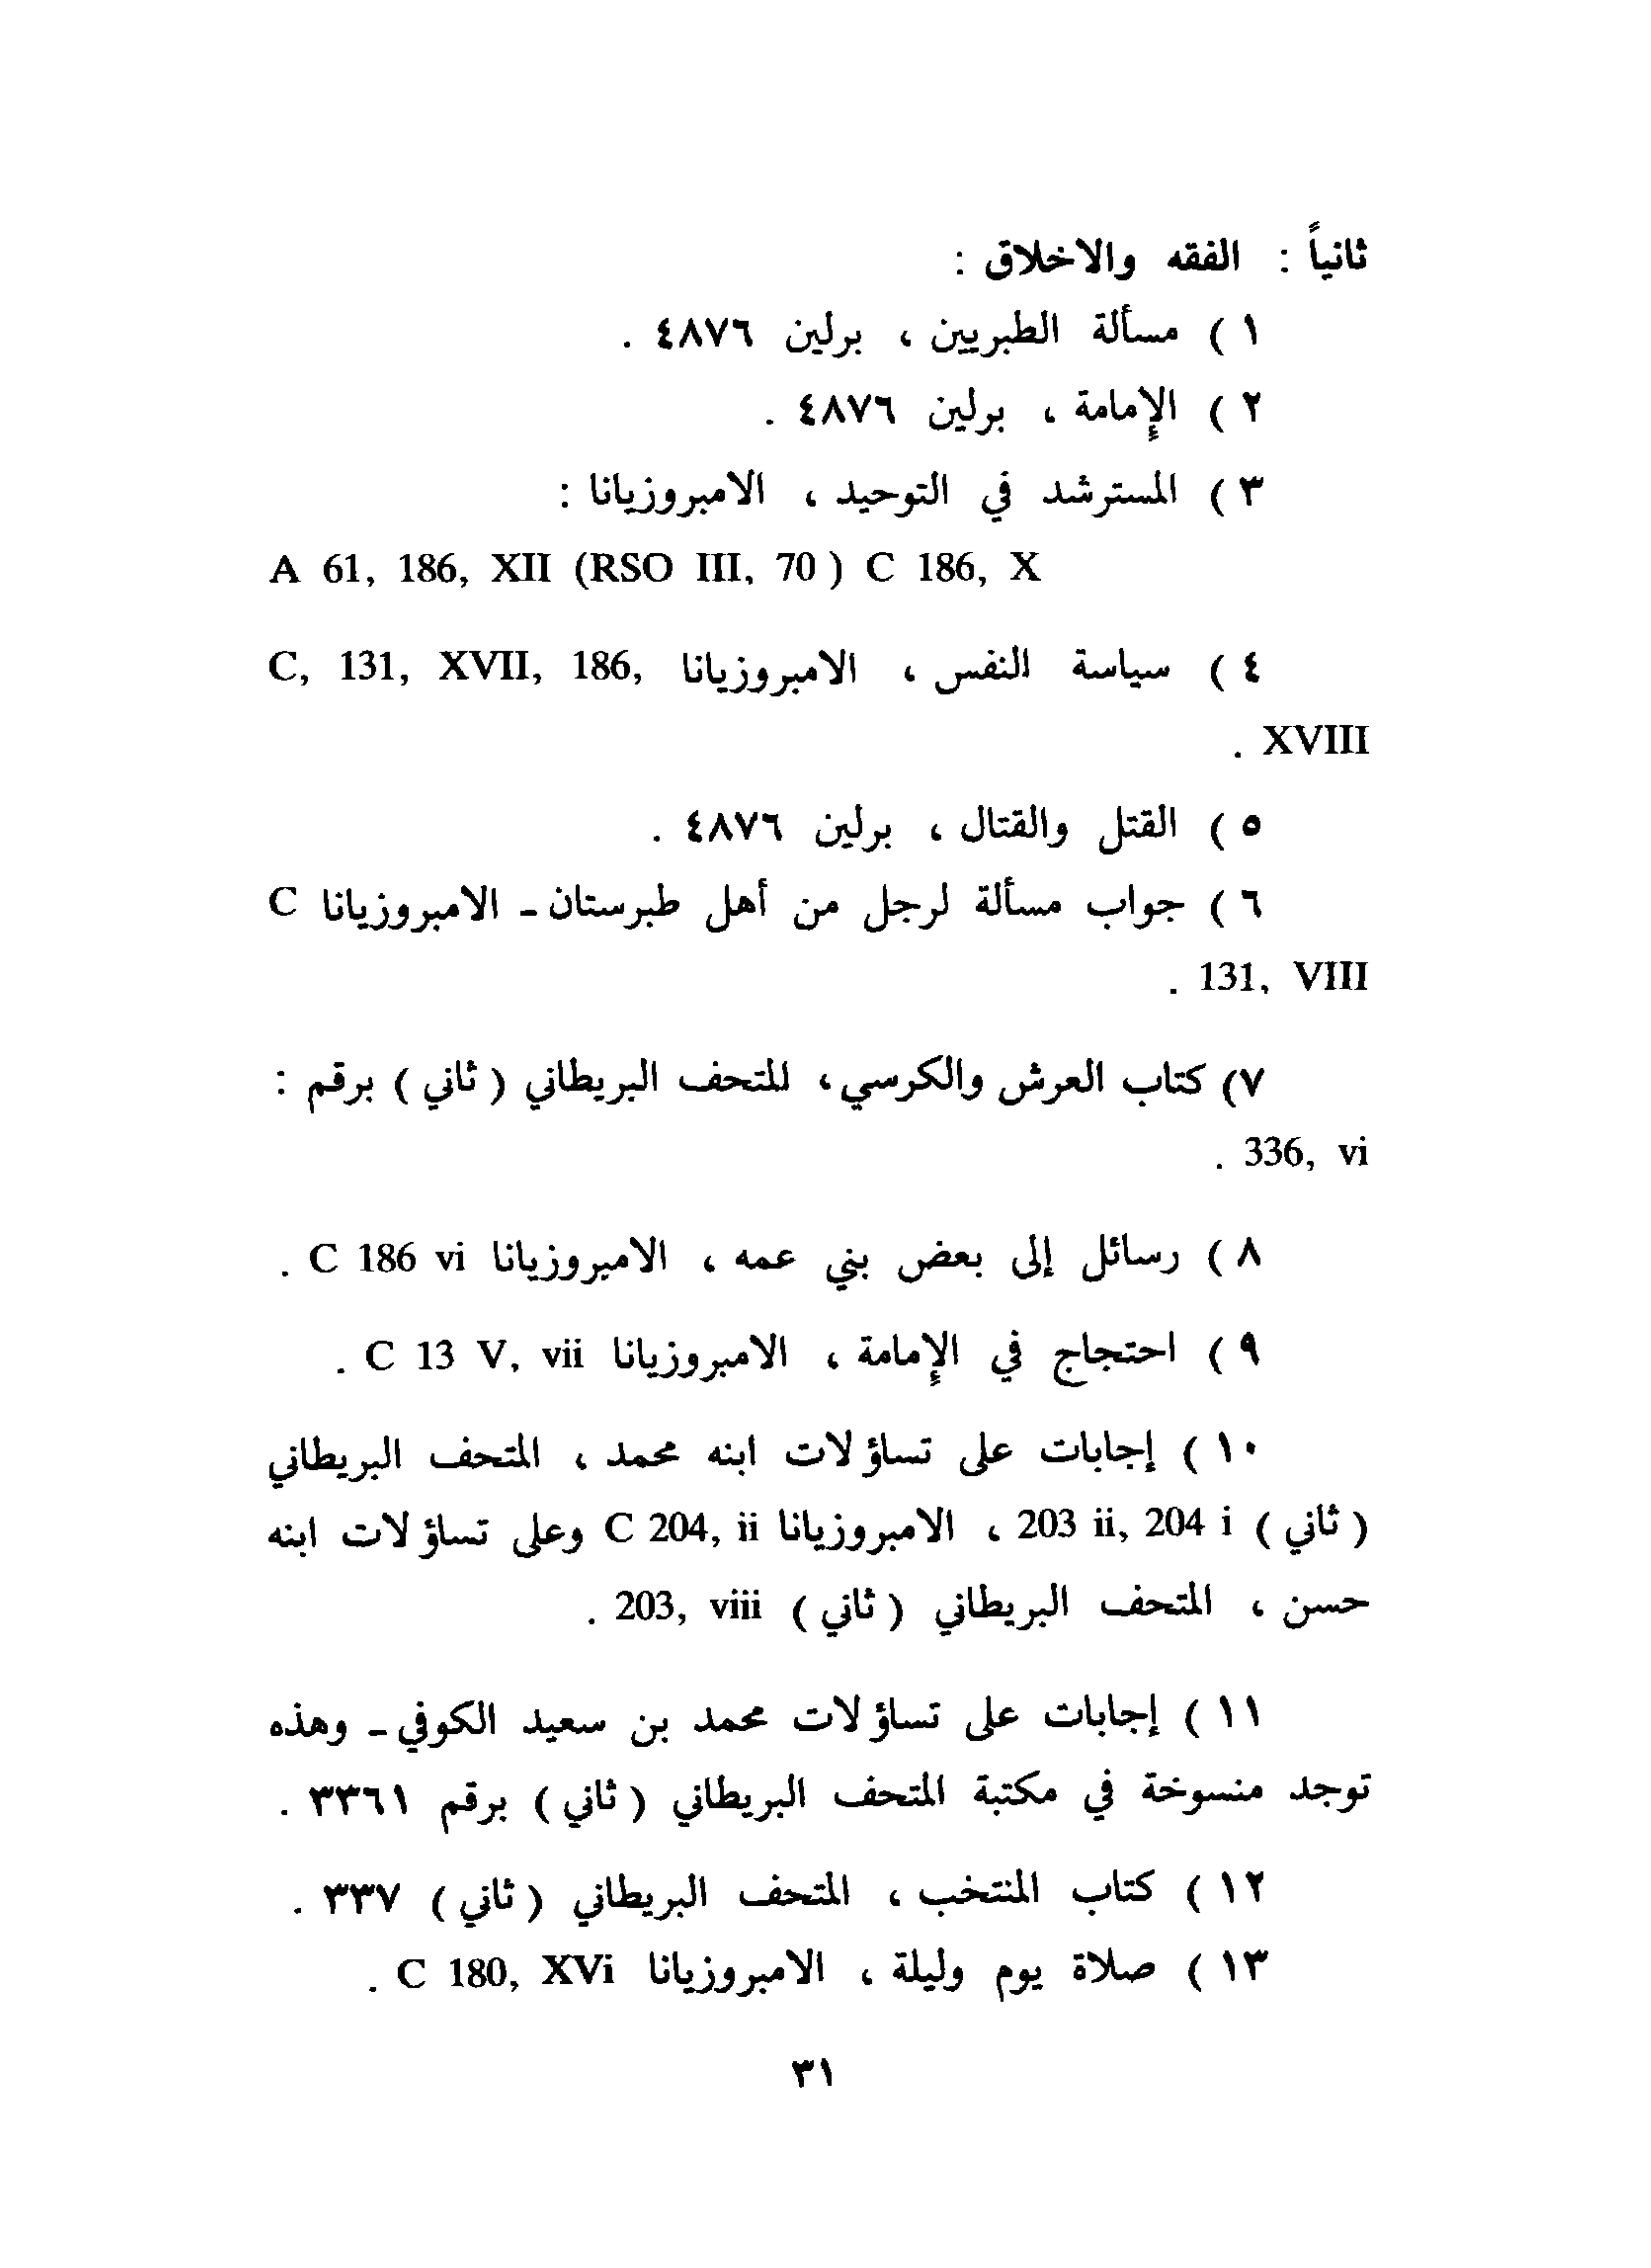 ثانياً : الفقه والاخلاق :
١ ) مسألة الطبريين ، برلين ٤٨٧٦ .
٢ ) الإمامة ، برلين ٤٨٧٦ .
٣ ) المسترشد في التوحيد ، الامبروزيانا :
A 61, 186, XII (RSO III, 70 ) C 186, X
٤ ) سياسة النفس ، الامبروزيانا C, 131, XVII, 186,
XVIII .
٥ ) القتل والقتال ، برلين ٤٨٧٦ .
٦ ) جواب مسألة لرجل من أهل طبرستان - الامبروزيانا C
131, VIII .
٧) كتاب العرش والكرسي ، للتحف البريطاني ( ثاني ) برقم :
336, vi .
٨ ) رسائل إلى بعض بني عمه ، الامبروزيانا C 186 vi .
٩ ) احتجاج في الإمامة ، الامبروزيانا C 13 V, vii .
١٠ ) إجابات على تساؤلات ابنه محمد ، المتحف البريطاني
( ثاني ) 203 ii, 204 i ، الامبروزيانا C 204, ii وعلى تساؤلات ابنه
حسن ، المتحف البريطاني ( ثاني ) 203, viii .
١١ ) إجابات على تساؤلات محمد بن سعيد الكوفي - وهذه
توجد منسوخة في مكتبة المتحف البريطاني ( ثاني ) برقم ٣٣٦١ .
١٢ ) كتاب المنتخب ، المتحف البريطاني ( ثاني ) ٣٣٧ .
١٣ ) صلاة يوم وليلة ، الامبروزيانا C 180, XVi .
٣١